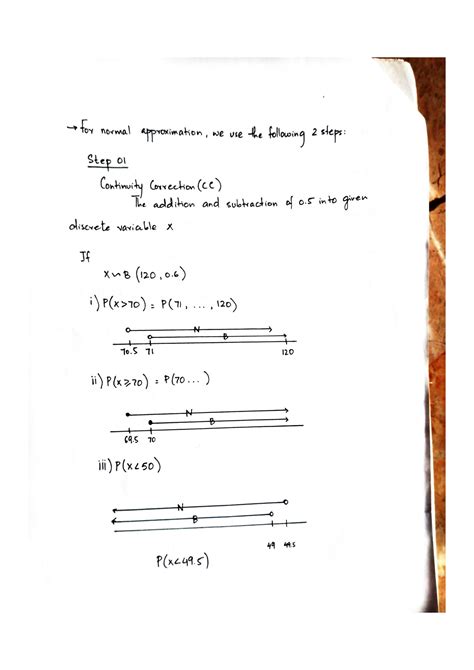 → For normal approximation, we use the following 2 steps:
Step 01
Continuity Correction (CC)
The addition and subtraction of 0.5 into given
discrete variable x
If
X ~ B (120, 0.6)
i) P(X>70) = P(71, ..., 120)
N
B
70.5 71 120
ii) P(X⩾70) = P(70...)
N
B
69.5 70
iii) P(X<50)
N
B
49 49.5
P(X<49.5)